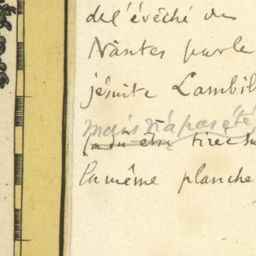 de l'évêché de
Nantes par le
jésuite Lambil
mais n'a pas été
tiré su
la même planche